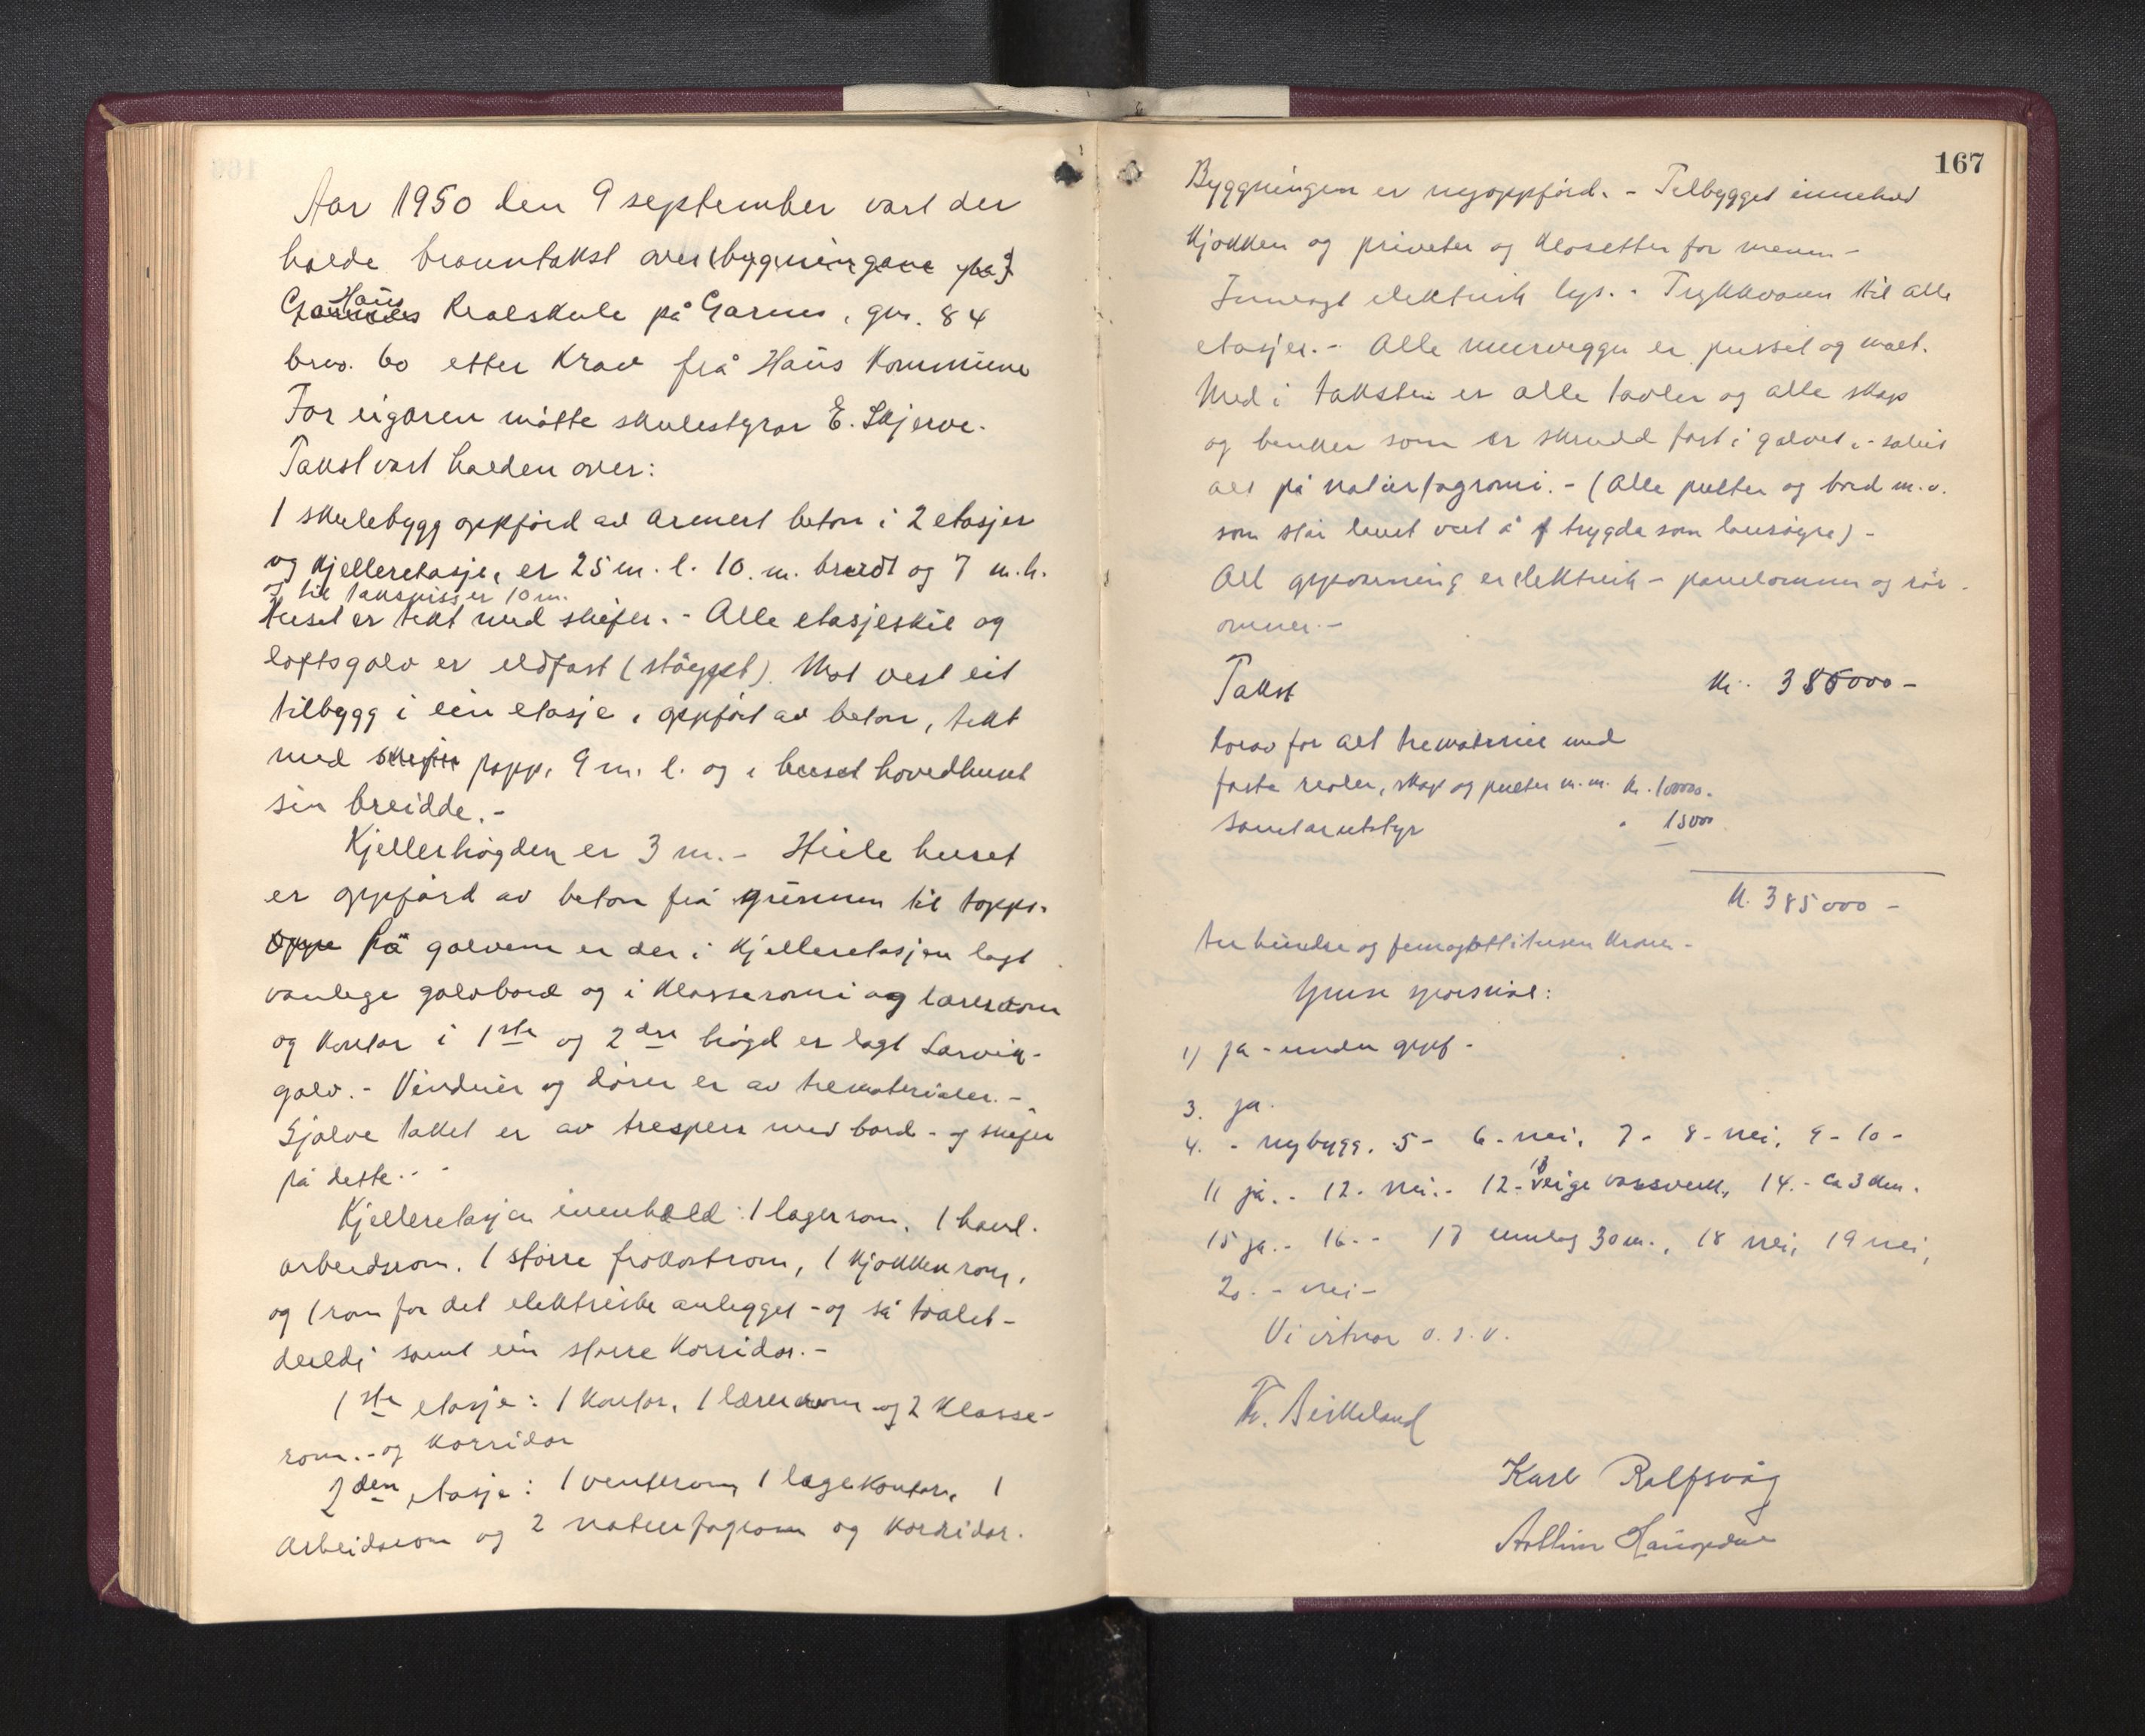 Aar 1950 den 9 september vart der
halde branntakst over (bygningane på)
Haus
Garnes Realskule på Garnes, gnr. 84
brno. 60 etter krav frå Haus Kommune
For eigaren møtte skulestyrar E. Skjerve.
Takst vart halden over:
1 skulebygg oppførd av armert beton i 2 etasjer
og kjelleretasje, er 25 m. l. 10. m. breidt og 7 m. h.
og til takspiss er 10 m.
Huset er tekt med skifer. - Alle etasjeskil og
loftsgolv er eldfast (støypt). Mot vest eit
tilbygg i ein etasje, oppført av beton, tekt
med skifer papp, 9 m. l. og i huset hovedhuset
sin breidde. -
Kjellerhøgden er 3 m. - Heile huset
er oppførd av beton frå grunnen til topps.
Oppe på golvem er der i kjelleretasjen lagt
vanlege golvbord og i klasseromi og lærerrom
og kontor i 1ste og 2dre høgd er lagt Larvik-
golv. - Vinduer og dører er av trematerialer. -
Sjølve taket er av tresperr med bord - og skifer
på dette. -
Kjelleretasjen inneheld: 1 lagerrom, 1 hand-
arbeidsrom. 1 større frokostrom, 1 kjøkkenrom,
og 1 rom for det elektriske anlegget - og så toalet-
deledi samt ein større korridor. -
1ste etasje: 1 kontor, 1 lærerrom og 2 klasse-
rom. - og korridor
2den etasje: 1 venterom, 1 legekontor, 1
arbeidsrom og 2 naturfagrom og korridor.
167
Byggningen er nyoppførd. - Tilbygget inneheld
kjøkken og priveter og klosetter for menn -
Innlagt elektrisk lys. - Trykkvann til alle
etasjer. - Alle murvegger er pusset og malt.
Med i taksten er alle tavler og alle skap
og benker som er skrudd fast i golvet, - saleis
alt på naturfagromi. - (Alle pulter og bord m. v.
som står laust vert å trygda som lausøyre) -
All oppvarming er elektrisk - panelomnn og rør-
omner. -
Takst kr. 385000 -
herav for alt trematerier med
faste reoler, skap og pulter m. m. kr. 100000.
Sanitærutstyr " 15000
kr. 385000 -
tre hundre og femogåttitusen kroner -
Ymse spørsmål:
1) ja - under oppf -
3. ja.
4. - nybygg. 5 - 6 - nei, 7 - 8 - nei, 9 - 10 -
11 ja. - 12. nei. - 12 - 13 eige vassverk, 14. - ca 3 km.
15 ja. - 16 - - 17 innlag 30 m., 18 nei, 19 nei,
20. - nei -
Vi vitnar o. s. v.
Th. Birkeland
Karl Rolfsvåg
Haugsdal